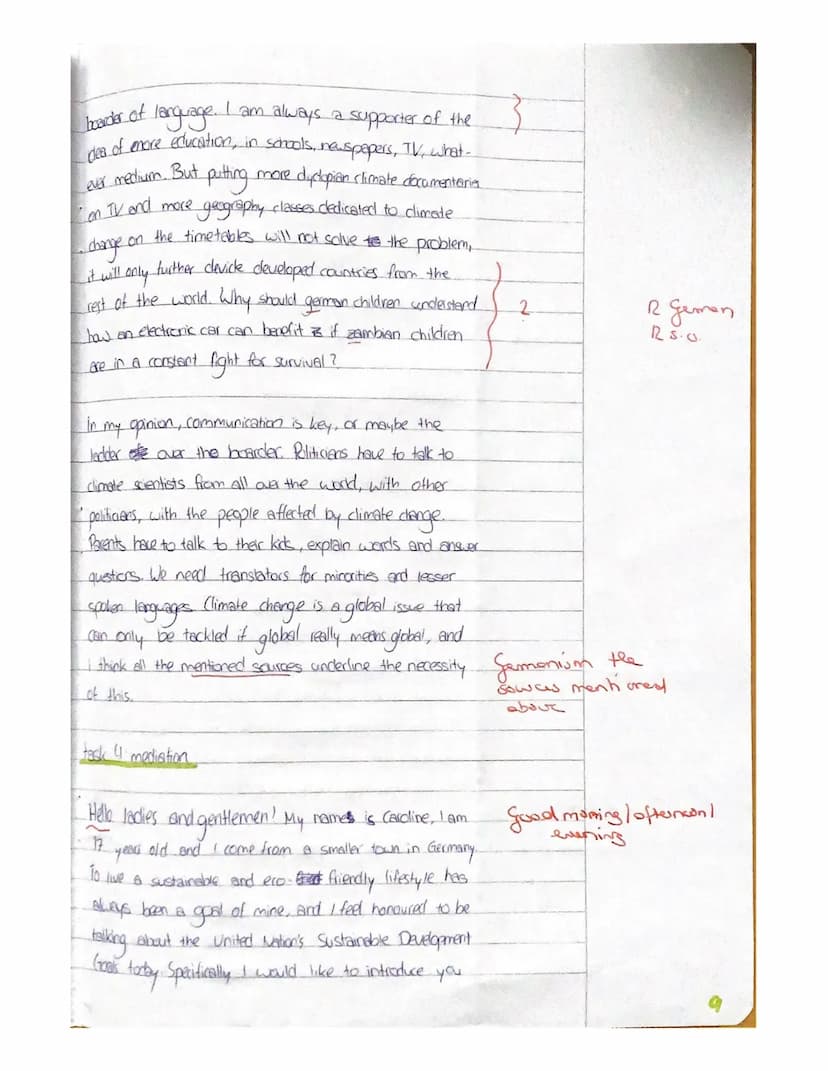 boarder of language. I am always a supporter of the
idea of more education, in schools, newspapers, TV, what-
ever medium. But putting more dystopian climate documentaries
on TV and more geography classes dedicated to climate
change on the timetables will not solve the problem,
it will only further devide developed countries from the
rest of the world. Why should german children understand
how an electronic car can benefit if zambian children
are in a constant fight for survival?
?
R German
R s.o.
In my opinion, communication is key, or maybe the
ladder over the boarder. Politicians have to talk to
climate scientists from all over the world, with other
politicians, with the people affected by climate change.
Parents have to talk to their kids, explain words and answer
questions. We need translators for minorities and lesser
spoken languages. Climate change is a global issue that
can only be tackled if global really means global, and
i think all the mentioned sources underline the necessity
of this.
Germanism the
sources mentioned
above
task 4 mediation
Hello ladies and gentlemen! My name is Caroline, I am
17 years old and I come from a smaller town in Germany.
To live a sustainable and eco-friendly lifestyle has
always been a goal of mine, and I feel honoured to be
talking about the United Nation's Sustainable Development
Goals today. Specifically I would like to introduce you
Good morning/afternoon/
evening
9